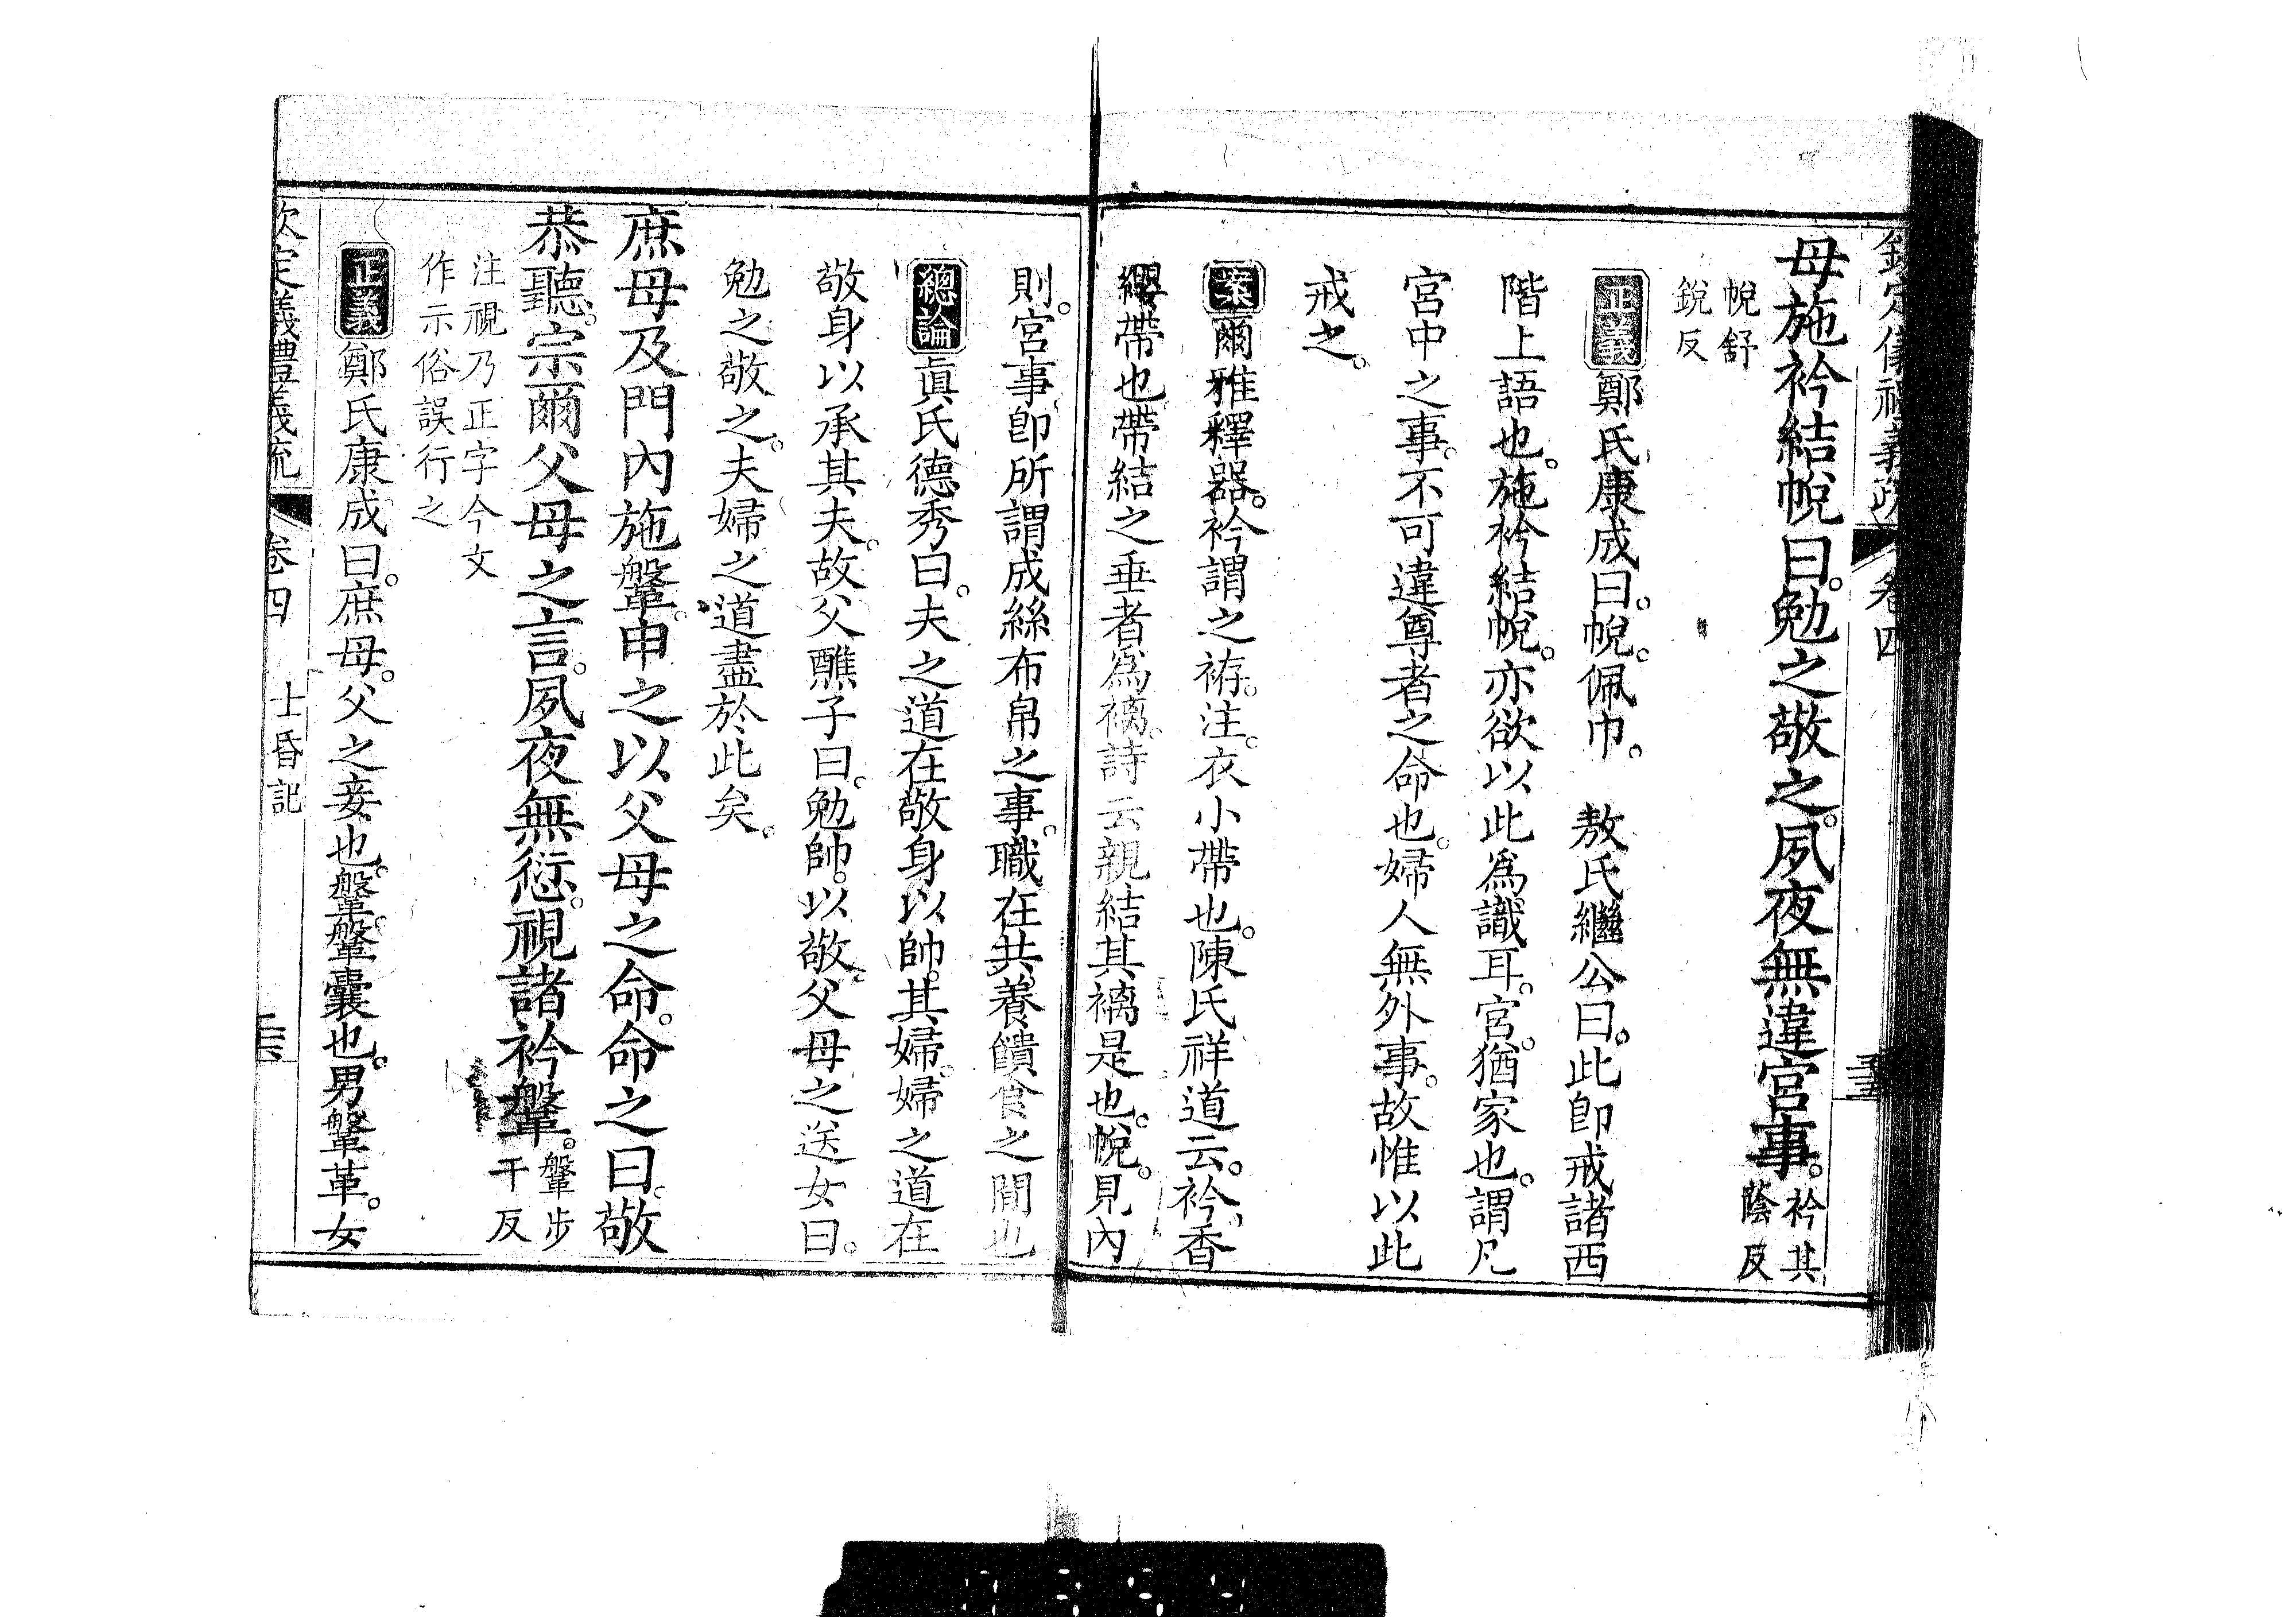 欽定儀禮義疏 卷四
母施衿結帨曰。勉之敬之。夙夜無違宮事。衿其蔭反
帨舒銳反
正義鄭氏康成曰。帨。佩巾。 敖氏繼公曰。此卽戒諸西
階上語也。施衿結帨。亦欲以此爲識耳。宮。猶家也。謂凡
宮中之事。不可違尊者之命也。婦人無外事。故惟以此
戒之。
案爾雅釋器。衿謂之袸。注。衣小帶也。陳氏祥道云。衿。香
纓帶也。帶結之垂者爲褵。詩云親結其褵是也。帨。見內
則。宮事。卽所謂成絲布帛之事。職在共養饋食之閒也
總論眞氏德秀曰。夫之道在敬身以帥。其婦。婦之道在
敬身以承其夫。故父醮子曰。勉帥。以敬。父母之送女曰。
勉之敬之。夫婦之道盡於此矣。
庶母及門內施鞶。申之以父母之命。命之曰。敬
恭聽。宗爾父母之言。夙夜無愆。視諸衿鞶。鞶步干反
注視乃正字今文
作示俗誤行之
正義鄭氏康成曰。庶母。父之妾也。鞶。鞶囊也。男鞶革。女
欽定儀禮義疏 卷四 士昏記